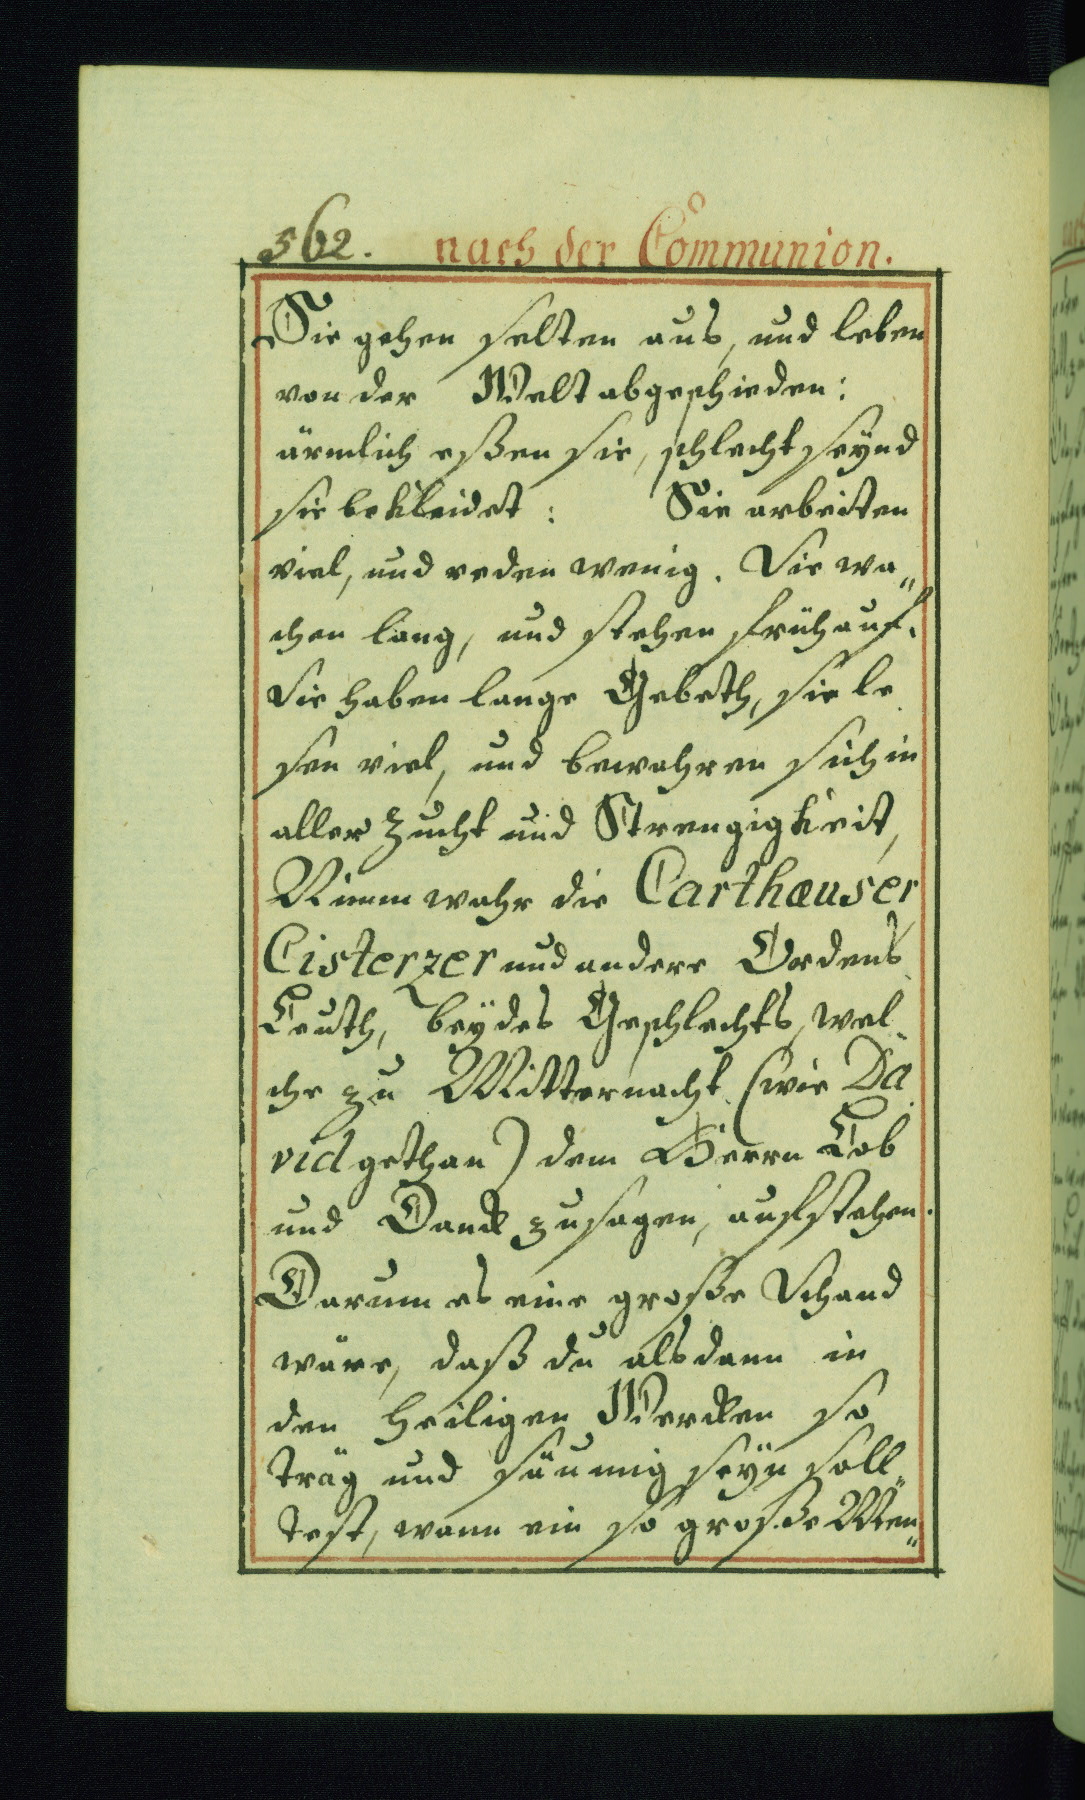 562. nach der Communion.
Sie gehen selten aus, und leben
von der Welt abgeschieden:
ärmlich eßen sie, schlecht seynd
sie bekleidet: Sie arbeiten
viel, und reden wenig. Sie wa„
chen lang, und stehen früh auf.
Sie haben lange Gebeth, sie le
sen viel, und bewahren sich in
aller Zucht und Strengigkeit,
Nimm wahr die Carthæuser
Cisterzer und andere Ordens
Leuth, beÿdes Geschlechts, wel„
che zu Mitternacht (wie Da
vid gethan) dem Herrn Lob
und Danck zusagen, aufstehen.
Darum es eine große Schand
wäre, daß du alsdann in
den heiligen Wercken so
träg und säumig seÿn soll„
test, wann ein so große Men„